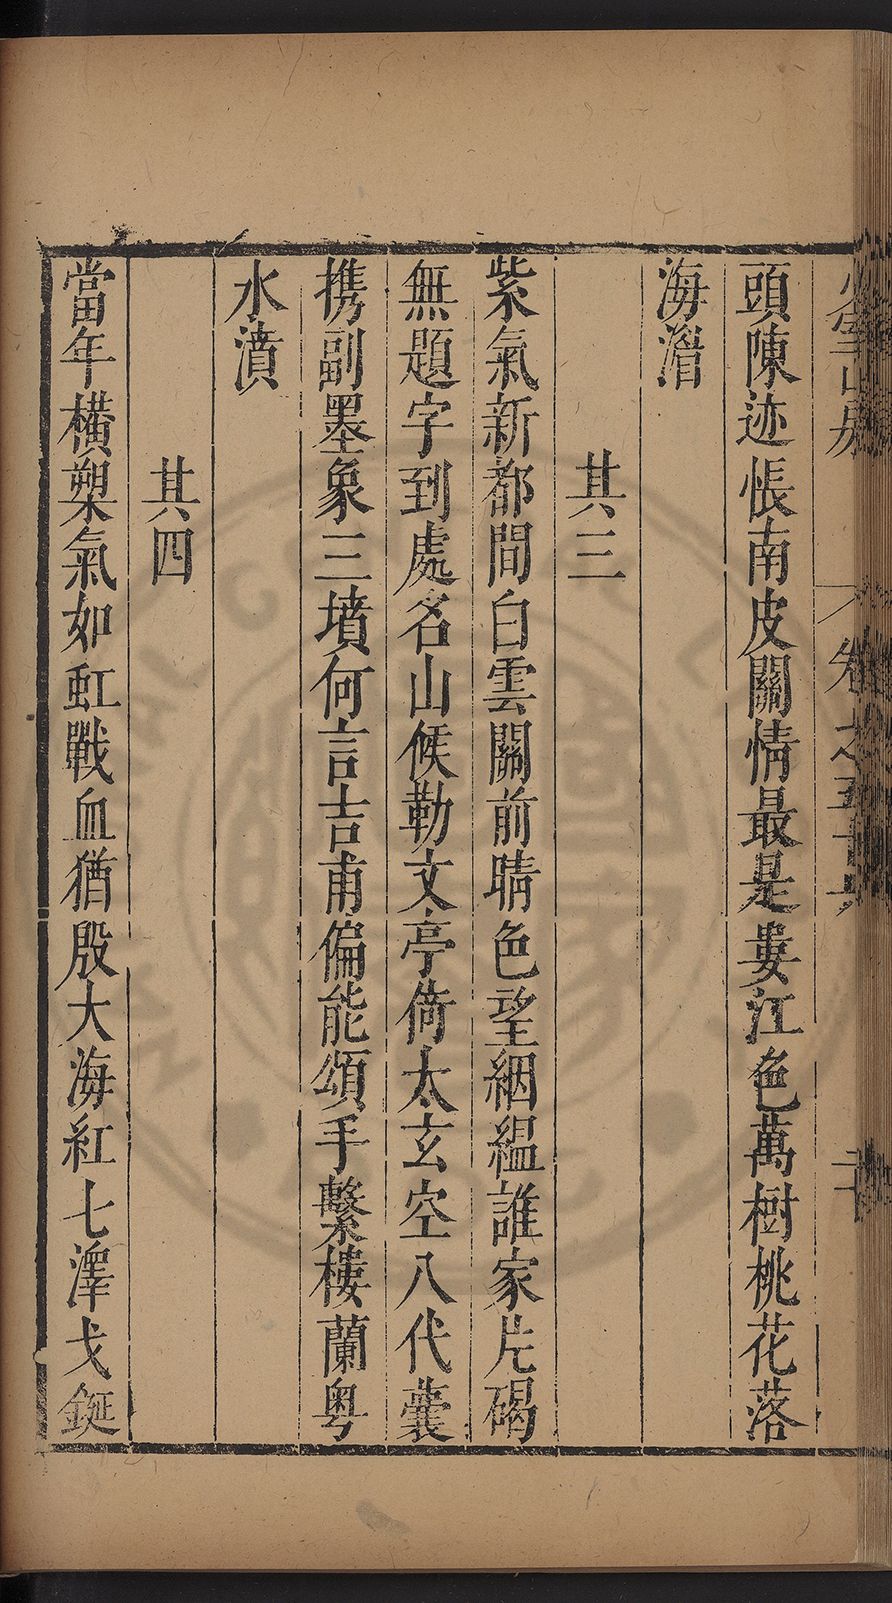 少室山房 卷之五十六 二十
頭陳迹悵南皮關情最是婁江色萬樹桃花落
海潛
其三
紫氣新都間白雲關前晴色望絪縕誰家片碣
無題字到處名山候勒文亭倚太玄空八代囊
携副墨象三墳何言吉甫偏能頌手繫樓蘭粤
水濆
其四
當年橫槊氣如虹戰血猶殷大海紅七澤戈鋋